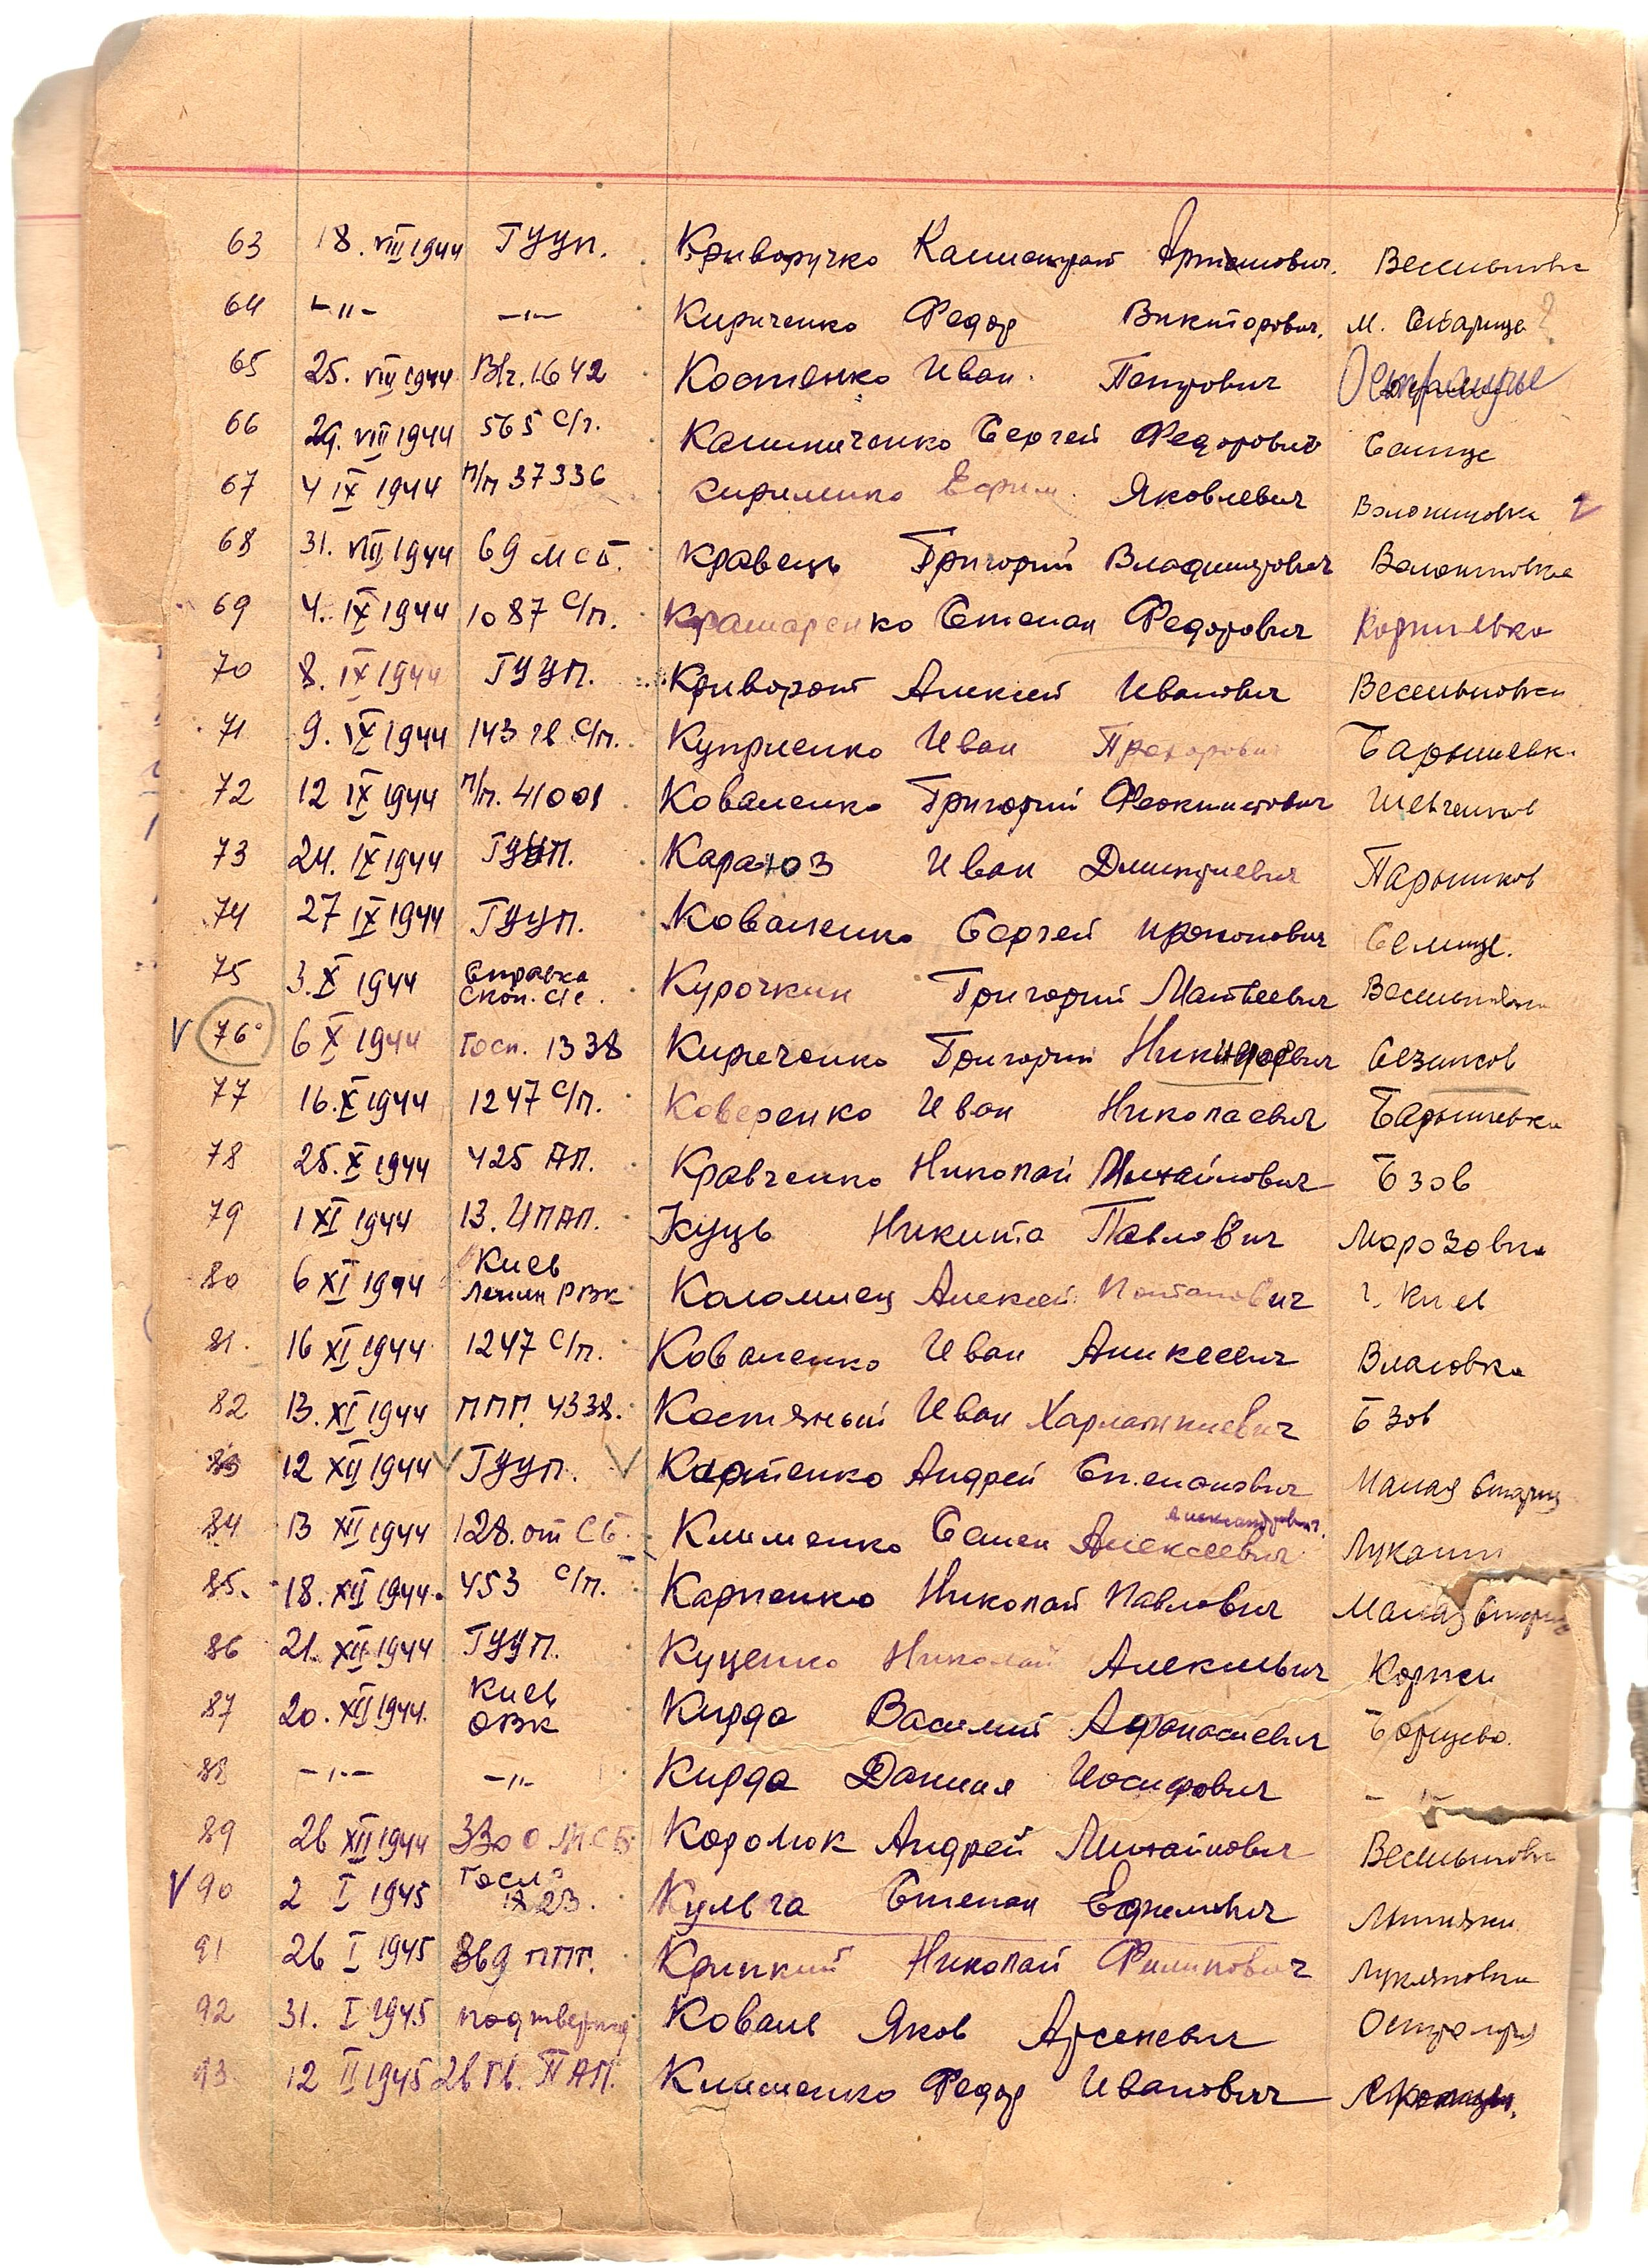 63 18. VIII 1944 ГУУП. Криворучко Калистрат Артемович. Весельновка
64 -"- -"- Кириченко Федор Викторович. М. Старица ?
65 25. VIII 1944 В/ч. 1642 Костенко Иван Петрович
66 29. VIII 1944 565 С/п. Калиниченко Сергей Федорович Селище
67 4 IX 1944 П/п 37336 Кириленко Ефим Яковлевич Волошиновка
68 31. VIII 1944 69 МСБ. Кравець Григорий Владимирович Волошиновка
69 4. IX 1944 1087 С/п. Крамаренко Степан Федорович Корнилвка
70 8. IX 1944 ГУУП. Криворот Алексей Иванович Весельновка
71 9. IX 1944 143 гв С/п. Куприенко Иван Прохорович Барышевк.
72 12 IX 1944 п/п. 41001 Коваленко Григорий Феоктистович Шевченков
73 24. IX 1944 ГУУП. Караюз Иван Дмитриевич Парышков
74 27 IX 1944 ГУУП. Коваленко Сергей Прокопович Селище.
75 3. X 1944 Справка Курочкин Григорий Матвеевич
V 76 6 X 1944 Госп. 1338 Киреченко Григорий Никифорович Сезинков
77 16. X 1944 1247 С/п. Коверенко Иван Николаевич Барышевка
78 25. X 1944 425 АП. Кравченко Николай Михайлович Бзов
79 1 XI 1944 13. ИПАП. Куць Никита Павлович Морозовка
80 6 XI 1944 Киев Ленин РВК Коломиец Алексей Потапович г. Киев
81. 16 XI 1944 1247 С/п. Коваленко Иван Аликеевич Власовка
82 13. XI 1944 ППГ. 4338. Костяный Иван Харлампиевич Бзов
83 12 XII 1944 ГУУП. Карпенко Андрей Степанович Малая Стариц
Александрович.
84 13 XII 1944 128. от СБ. Клименко Семен Алексеевич Лукаши
85. 18. XII 1944. 453 С/п. Карпенко Николай Павлович Малая Стариц
86 21. XII 1944 ГУУП. Куценко Николай Алексеевич Коржи
87 20. XII 1944. Киев ОВК Кирда Василий Афонасиевич Борщево.
88 -"- -"- Кирда Данил Иосифович -"-
89 26 XII 1944 330 О МСБ Королюк Андрей Михайлович Весельновка
V 90 2 I 1945 Госп. 1823. Кульга Степан Ефимович
91 26 I 1945 869 ППГ. Крипкий Николай Филипович Лукьяновка
92 31. I 1945 подтвержд Коваль Яков Арсеневич Остролуч
93. 12 II 1945 26 Гв. ПАП. Клименко Федор Иванович